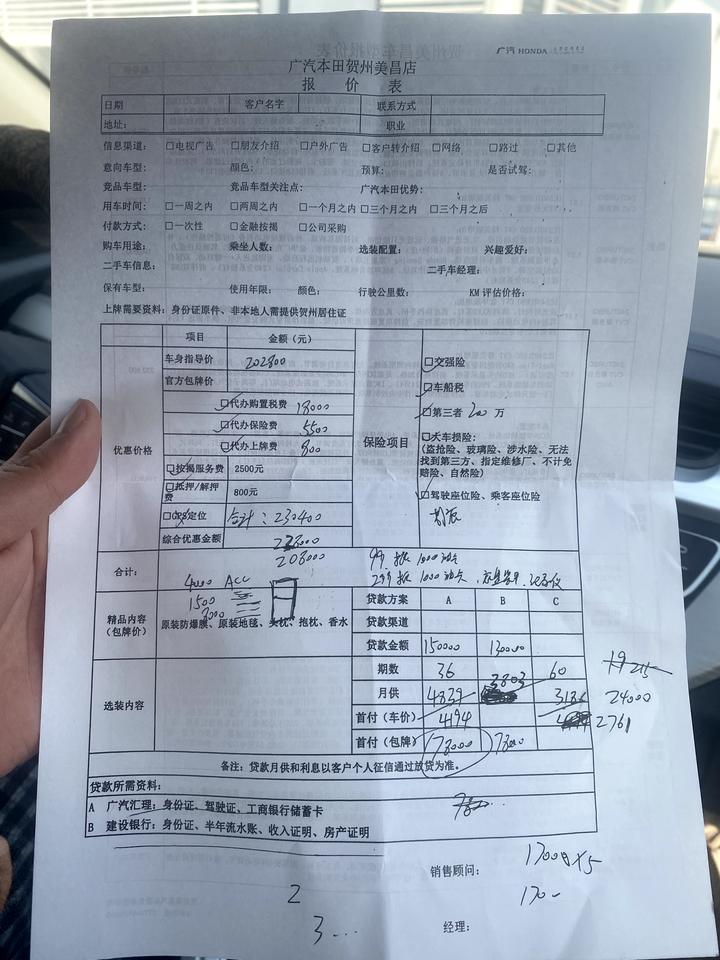 广汽 HONDA
广汽本田贺州美昌店
报 价 表
日期 客户名字 联系方式
地址: 职业
信息渠道: □电视广告 □朋友介绍 □户外广告 □客户转介绍 □网络 □路过 □其他
意向车型: 颜色: 预算: 是否试驾:
竞品车型: 竞品车型关注点: 广汽本田优势:
用车时间: □一周之内 □两周之内 □一个月之内 □三个月之内 □三个月之后
付款方式: □一次性 □金融按揭 □公司采购
购车用途: 乘坐人数: 选装配置: 兴趣爱好:
二手车信息: 二手车经理:
保有车型: 使用年限: 颜色: 行驶公里数: KM 评估价格:
上牌需要资料: 身份证原件、非本地人需提供贺州居住证
优惠价格
项目 金额（元）
车身指导价 202800
官方包牌价
□代办购置税费 18000
□代办保险费 5500
□代办上牌费 800
□按揭服务费 2500元
□抵押/解押费 800元
□GPS定位 合计: 230400
综合优惠金额
保险项目
□交强险
□车船税
□第三者 200 万
□大车损险:
(盗抢险、玻璃险、涉水险、无法
找到第三方、指定维修厂、不计免
赔险、自然险)
□驾驶座位险、乘客座位险
合计: 208000
99 1000
299 1000
4000 ACC
1500
2000
精品内容
（包牌价）
原装防爆膜、原装地毯、头枕、抱枕、香水
选装内容
贷款方案 A B C
贷款渠道
贷款金额 150000 130000
期数 36 60
3803
月供 4839 3186
24000
首付（车价） 4194
2761
首付（包牌） 78000 78000
备注: 贷款月供和利息以客户个人征信通过放贷为准。
贷款所需资料:
A 广汽汇理: 身份证、驾驶证、工商银行储蓄卡
B 建设银行: 身份证、半年流水账、收入证明、房产证明
销售顾问:
2
3 ...
经理: